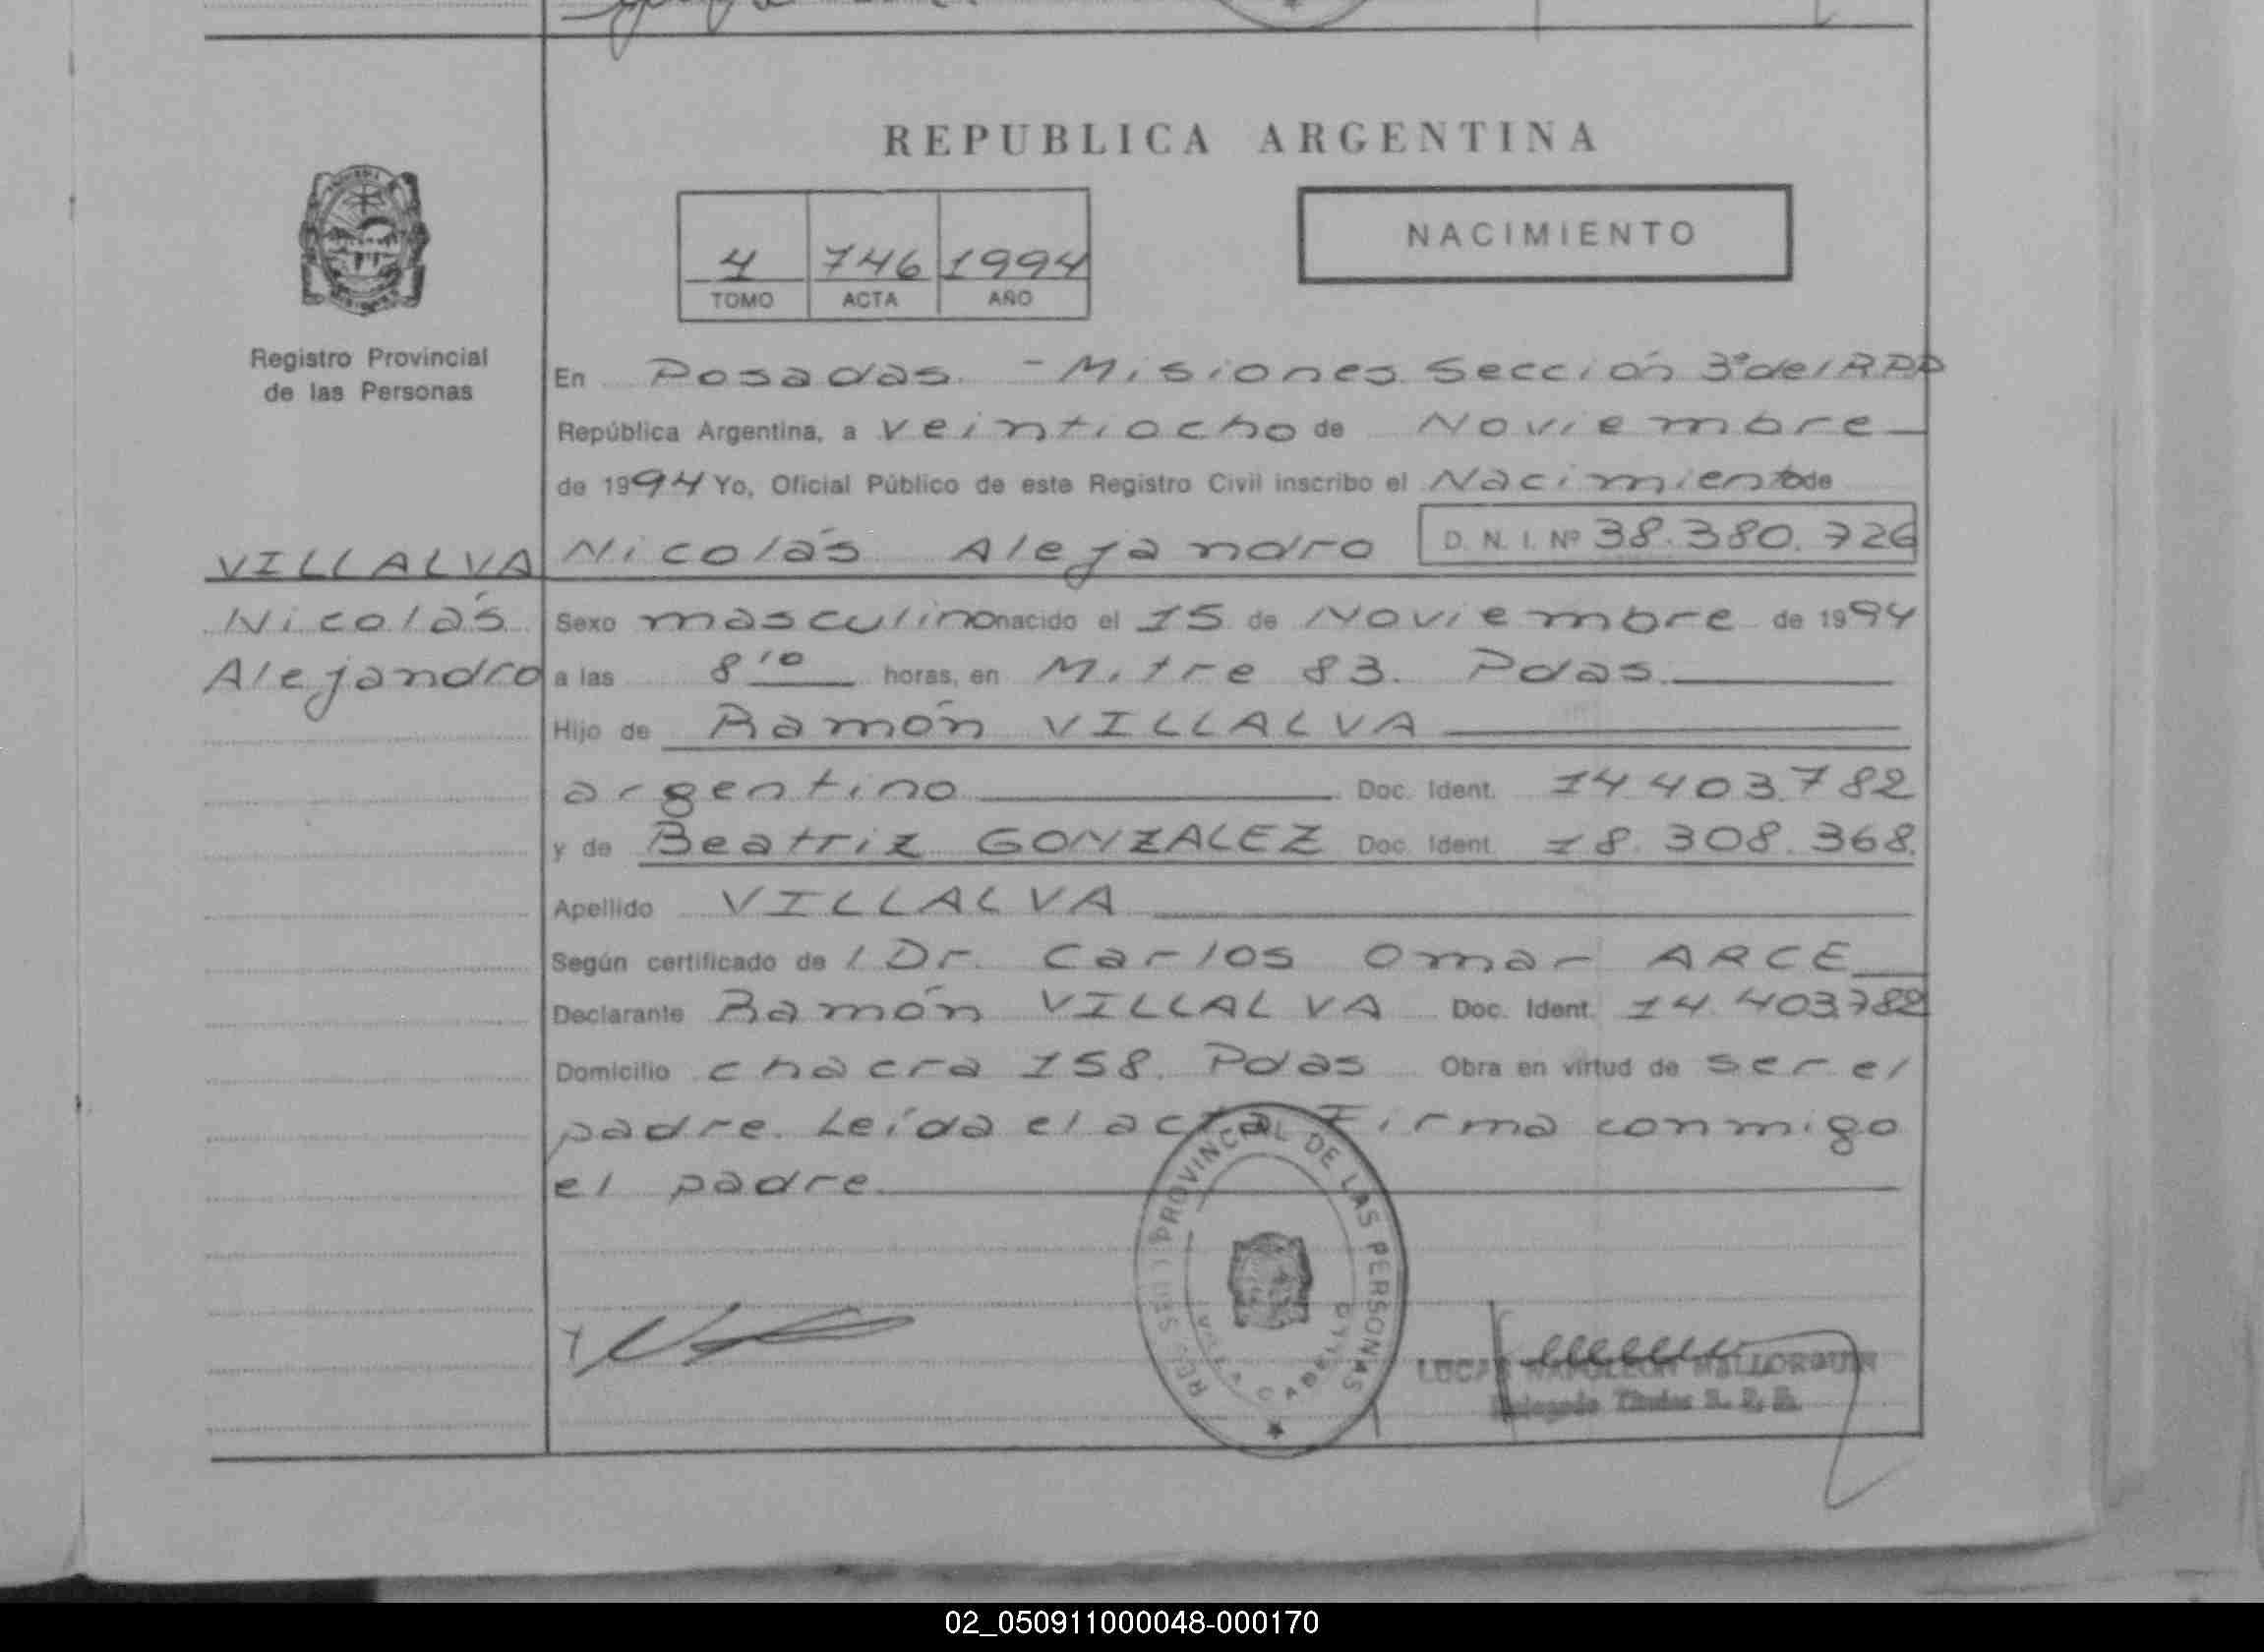 REPUBLICA ARGENTINA
4 746 1994
TOMO ACTA AÑO
NACIMIENTO
Registro Provincial
de las Personas
En Posadas. - Misiones Sección 3ª del RPP
República Argentina, a veintiocho de Noviembre
de 1994 Yo, Oficial Público de este Registro Civil inscribo el Nacimiento de
VILLALVA Nicolás Alejandro D. N. I. Nº 38.380.726
Nicolás Sexo masculino nacido el 15 de Noviembre de 1994
Alejandro a las 8 10 horas, en Mitre 83. Pdas.
Hijo de Ramón VILLALVA
argentino Doc. Ident. 14.403.782
y de Beatriz GONZALEZ Doc. Ident. 18.308.368.
Apellido VILLALVA
Según certificado de l Dr. Carlos Omar ARCE
Declarante Ramón VILLALVA Doc. Ident. 14.403.782
Domicilio chacra 158. Pdas Obra en virtud de ser el
padre. Leída el acta Firma conmigo
el padre.
PROVINCIAL DE LAS PERSONAS
LUCAS NAPOLEON MALLORQUIN
Delegado Titular R. P. P.
02_050911000048-000170